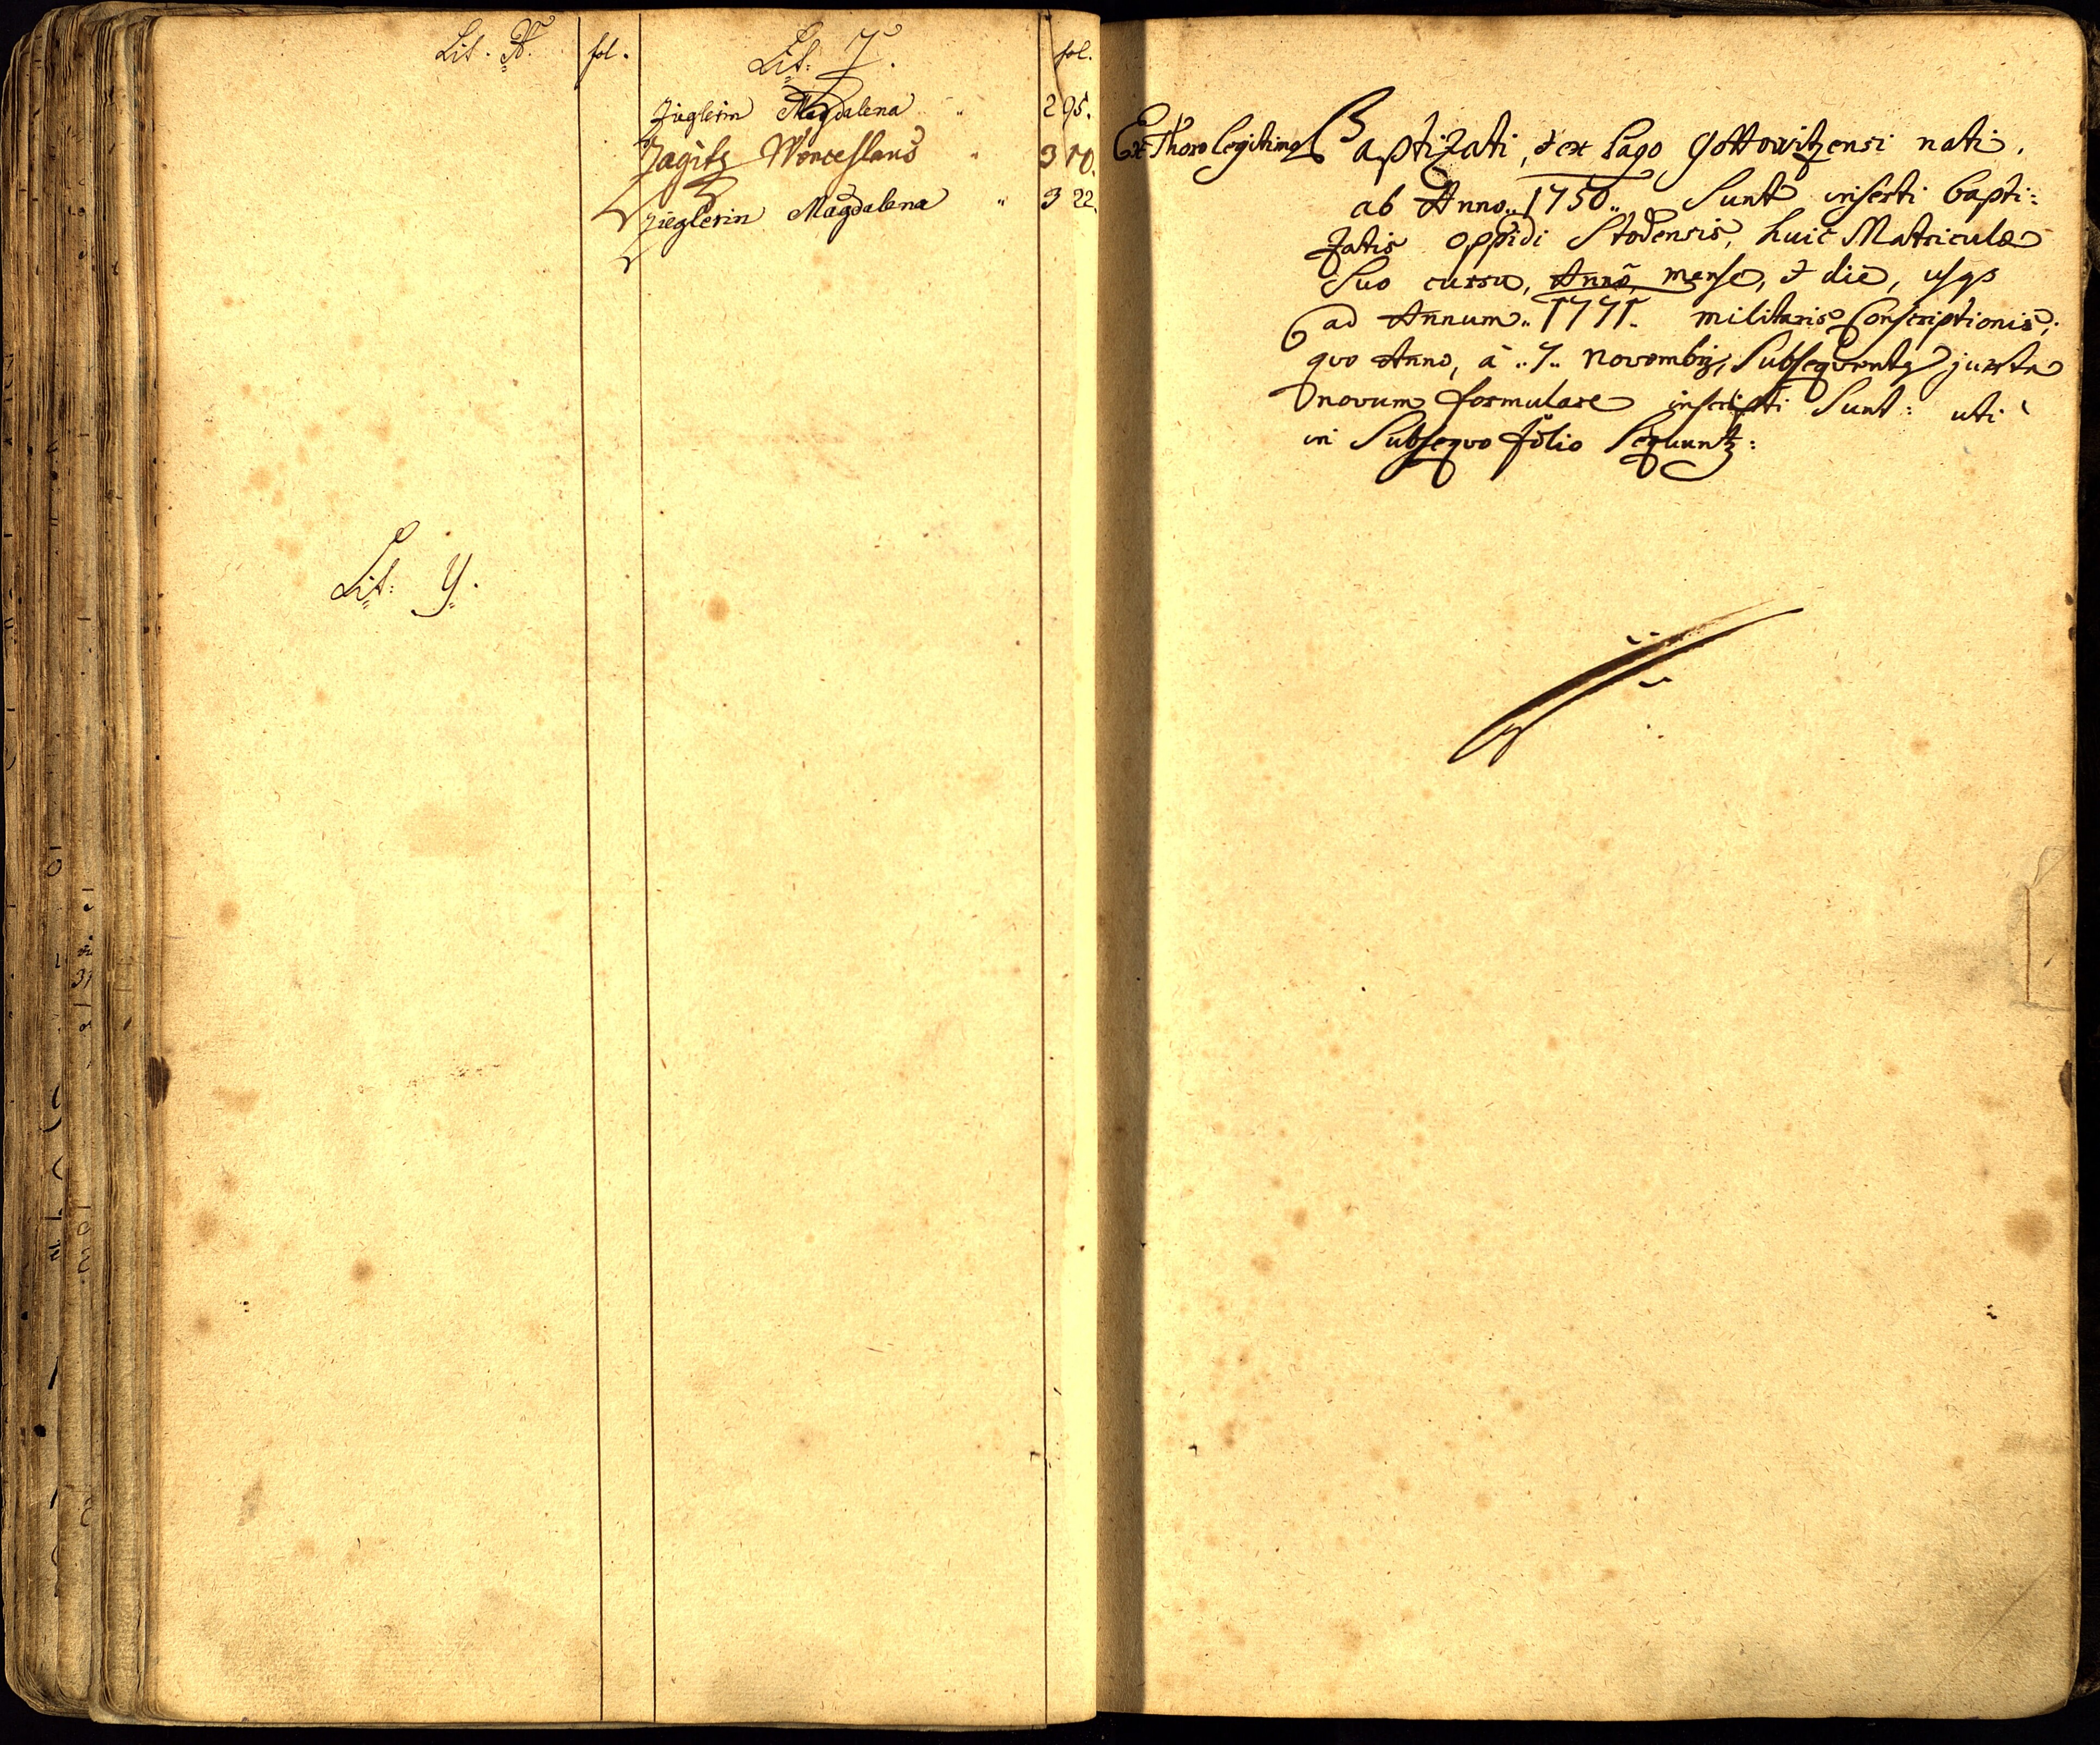 Lit. X. fol.
Lit: Y.
Lit: Z. fol.
Zieglerin Magdalena " 295.
Zagitz Wenceslaus " 310.
Zieglerin Magdalena " 322.
Ex Thoro legitimo Baptizati, & ex Pago Gottowitzensi nati.
ab Anno.. 1750.. Sunt inserti bapti:
zatis oppidi Stodensis, huic Matriculæ
Suo cursu, Anno, mense, & die, usqs
ad Annum.. 1771.. militaris Conscriptionis;
quo Anno, à ..7.. Novembris, Subsequentes juxta
novum formulare inscripti Sunt: uti
in Subsequo folio Sequuntur: